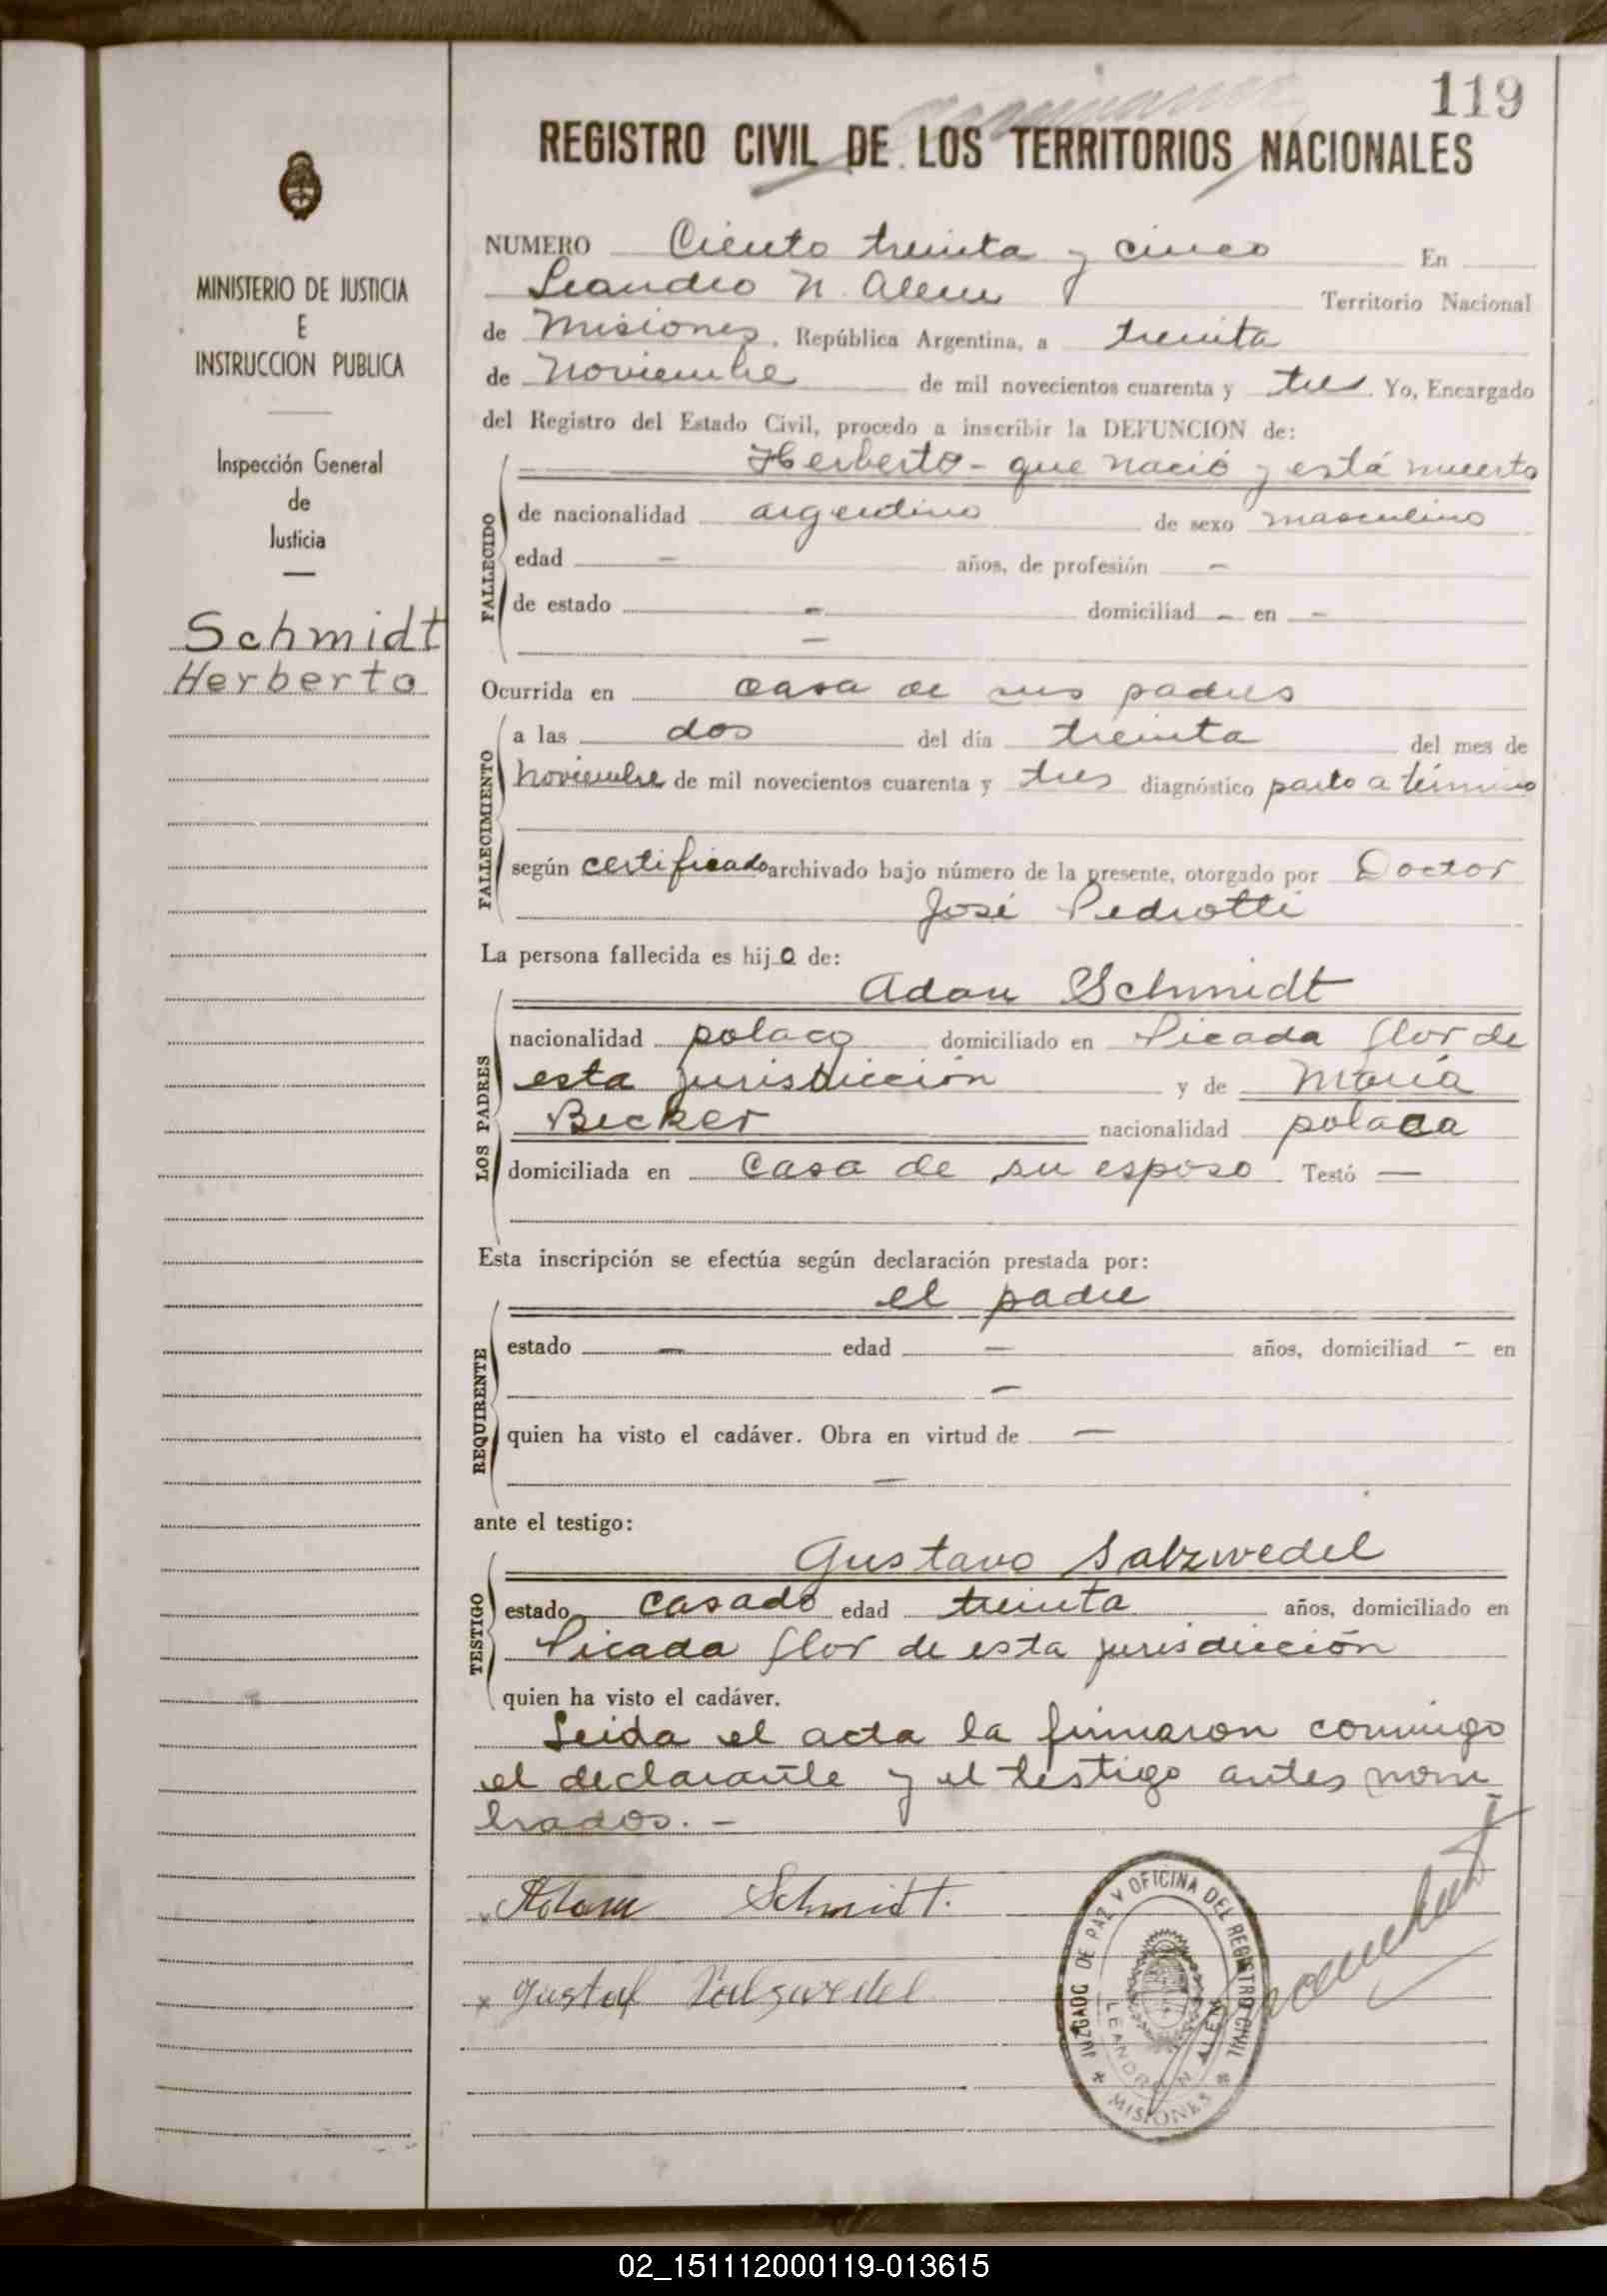 119
REGISTRO CIVIL DE LOS TERRITORIOS NACIONALES
MINISTERIO DE JUSTICIA
E
INSTRUCCION PUBLICA
Inspección General
de
Justicia
Schmidt
Herberto
NUMERO Ciento treinta y cinco En
Leandro N. Alem Territorio Nacional
de Misiones, República Argentina, a treinta
de Noviembre de mil novecientos cuarenta y tres. Yo, Encargado
del Registro del Estado Civil, procedo a inscribir la DEFUNCION de:
Herberto - que nació y está muerto
FALLECIDO
de nacionalidad argentino de sexo masculino
edad - años, de profesión -
de estado - domiciliad - en -
-
Ocurrida en casa de sus padres
FALLECIMIENTO
a las dos del día treinta del mes de
Noviembre de mil novecientos cuarenta y tres diagnóstico parto a término
según certificado archivado bajo número de la presente, otorgado por Doctor
José Pedrotti
La persona fallecida es hijo de:
LOS PADRES
Adan Schmidt
nacionalidad polaco domiciliado en Picada flor de
esta jurisdicción y de María
Becker nacionalidad polaca
domiciliada en casa de su esposo Testó —
Esta inscripción se efectúa según declaración prestada por:
REQUIRENTE
el padre
estado - edad - años, domiciliad - en
-
quien ha visto el cadáver. Obra en virtud de —
-
ante el testigo:
TESTIGO
Gustavo Salzwedel
estado casado edad treinta años, domiciliado en
Picada flor de esta jurisdicción
quien ha visto el cadáver.
Leida el acta la firmaron conmigo
el declarante y el testigo antes nom
brados. -
x Adam Schmidt.
x Gustaf Salzwedel
JUZGADO DE PAZ Y OFICINA DEL REGISTRO CIVIL
LEANDRO N. ALEM
* MISIONES *
02_151112000119-013615